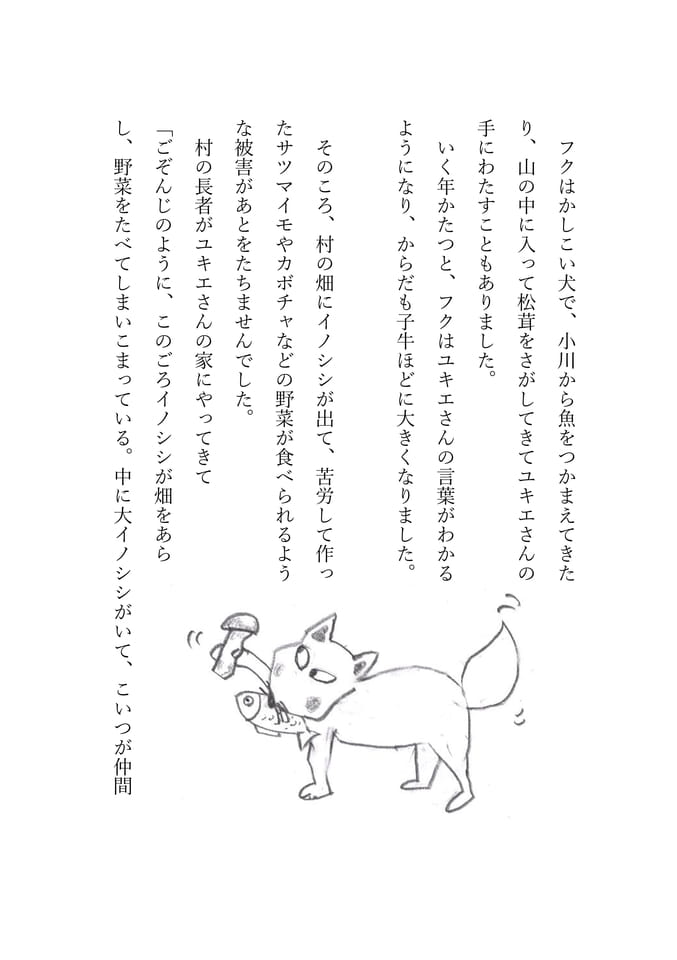 フクはかしこい犬で、小川から魚をつかまえてきた
り、山の中に入って松茸をさがしてきてユキエさんの
手にわたすこともありました。
いく年かたつと、フクはユキエさんの言葉がわかる
ようになり、からだも子牛ほどに大きくなりました。
そのころ、村の畑にイノシシが出て、苦労して作っ
たサツマイモやカボチャなどの野菜が食べられるよう
な被害があとをたちませんでした。
村の長者がユキエさんの家にやってきて
「ごぞんじのように、このごろイノシシが畑をあら
し、野菜をたべてしまいこまっている。中に大イノシシがいて、こいつが仲間